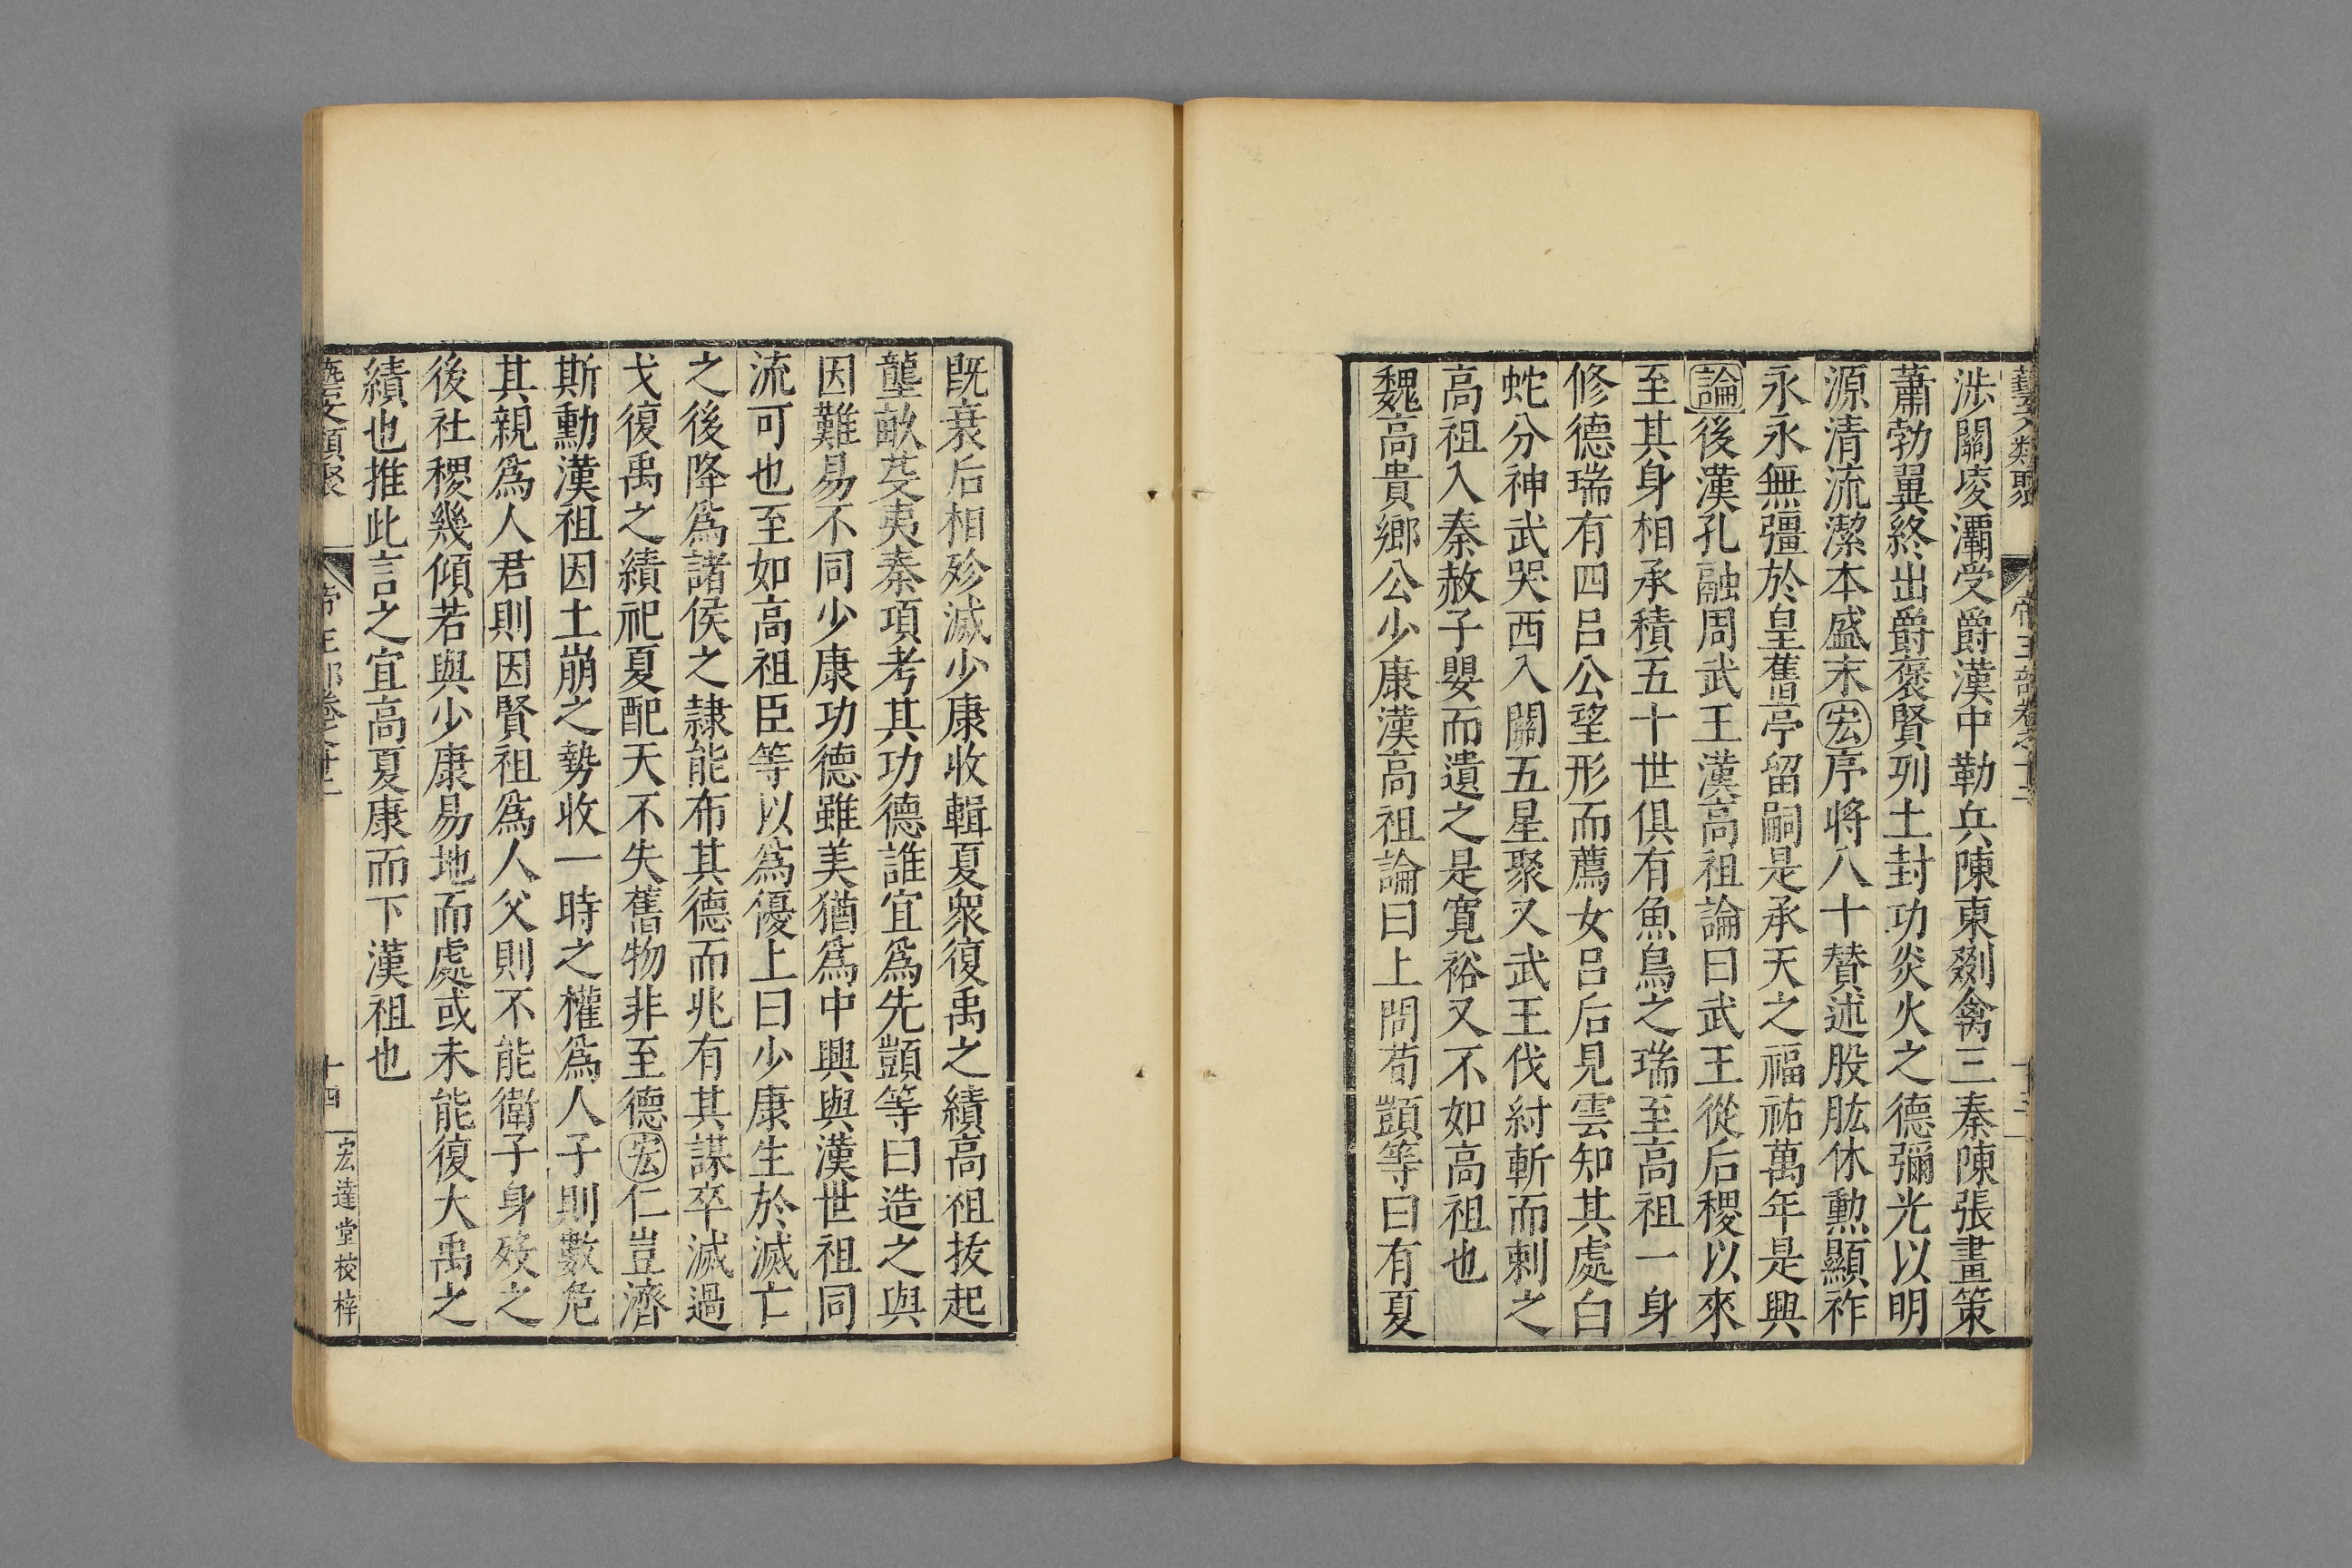 藝文類聚 帝王部卷之十二 十三
涉關凌灞受爵漢中勒兵陳東劉禽三秦陳張畫策
蕭勃翼終出爵褒賢列土封功炎火之德彌光以明
源清流潔本盛末宏序將八十贊述股肱休勳顯祚
永永無彊於皇舊亭留嗣是承天之福祐萬年是興
論後漢孔融周武王漢高祖論曰武王從后稷以來
至其身相承積五十世俱有魚鳥之瑞至高祖一身
修德瑞有四呂公望形而薦女呂后見雲知其處白
蛇分神武哭西入關五星聚又武王伐紂斬而刺之
高祖入秦赦子嬰而遺之是寬裕又不如高祖也
魏高貴鄉公少康漢高祖論曰上問荀顗等曰有夏
既衰后相殄滅少康收輯夏衆復禹之績高祖拔起
壟畝芟夷秦項考其功德誰宜為先顗等曰造之與
因難易不同少康功德雖美猶為中興與漢世祖同
流可也至如高祖臣等以為優上曰少康生於滅亡
之後降為諸侯之隸能布其德而兆有其謀卒滅過
戈復禹之績祀夏配天不失舊物非至德宏仁豈濟
斯勳漢祖因土崩之勢收一時之權為人子則數危
其親為人君則因賢祖為人父則不能衛子身歿之
後社稷幾傾若與少康易地而處或未能復大禹之
績也推此言之宜高夏康而下漢祖也
藝文類聚 帝王部卷之十二 十四 宏達堂校梓